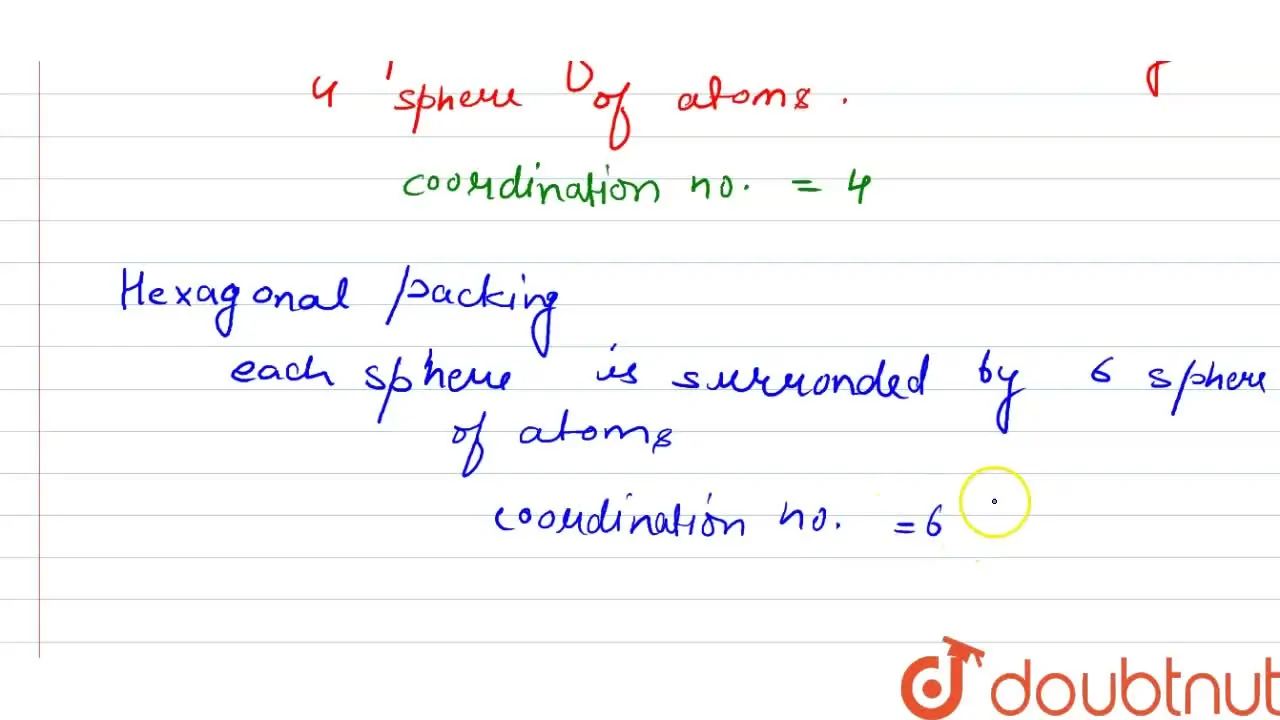 4 sphere of atoms.
coordination no. = 4
Hexagonal packing
each sphere is surronded by 6 sphere
of atoms
coordination no. = 6
doubtnut